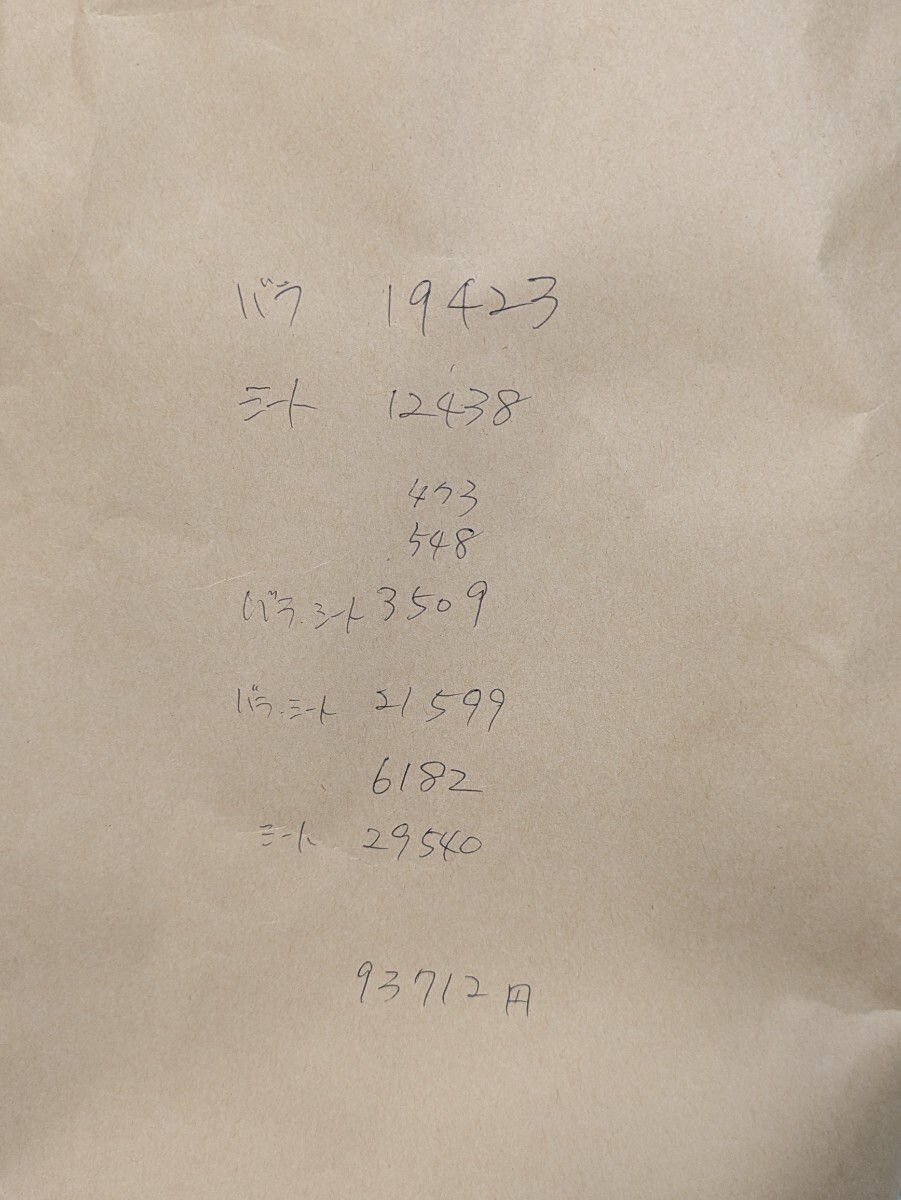 バラ 19423
シート 12438
473
548
バラ.シート 3509
バラ.シート 21599
6182
シート 29540
93712円